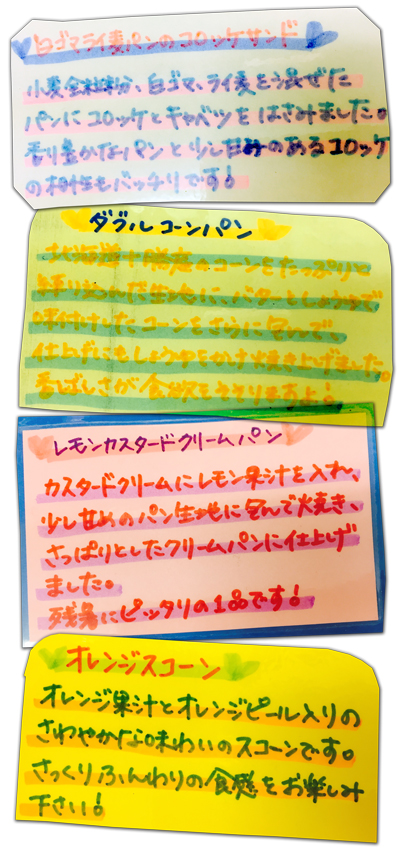 白ゴマライ麦パンのコロッケサンド
小麦全粒粉、白ゴマ、ライ麦を混ぜた
パンにコロッケとキャベツをはさみました。
香り豊かなパンと少し甘みのあるコロッケ
の相性もバッチリです!
ダブルコーンパン
北海道十勝産のコーンをたっぷりと
練り込んだ生地に、バターとしょうゆで
味付けしたコーンをさらに包んで、
仕上げにもしょうゆをかけ焼き上げました。
香ばしさが食欲をそそりますよ!
レモンカスタードクリームパン
カスタードクリームにレモン果汁を入れ、
少し甘めのパン生地に包んで焼き、
さっぱりとしたクリームパンに仕上げ
ました。
残暑にピッタリの1品です!
オレンジスコーン
オレンジ果汁とオレンジピール入りの
さわやかな味わいのスコーンです。
さっくりふんわりの食感をお楽しみ
下さい!